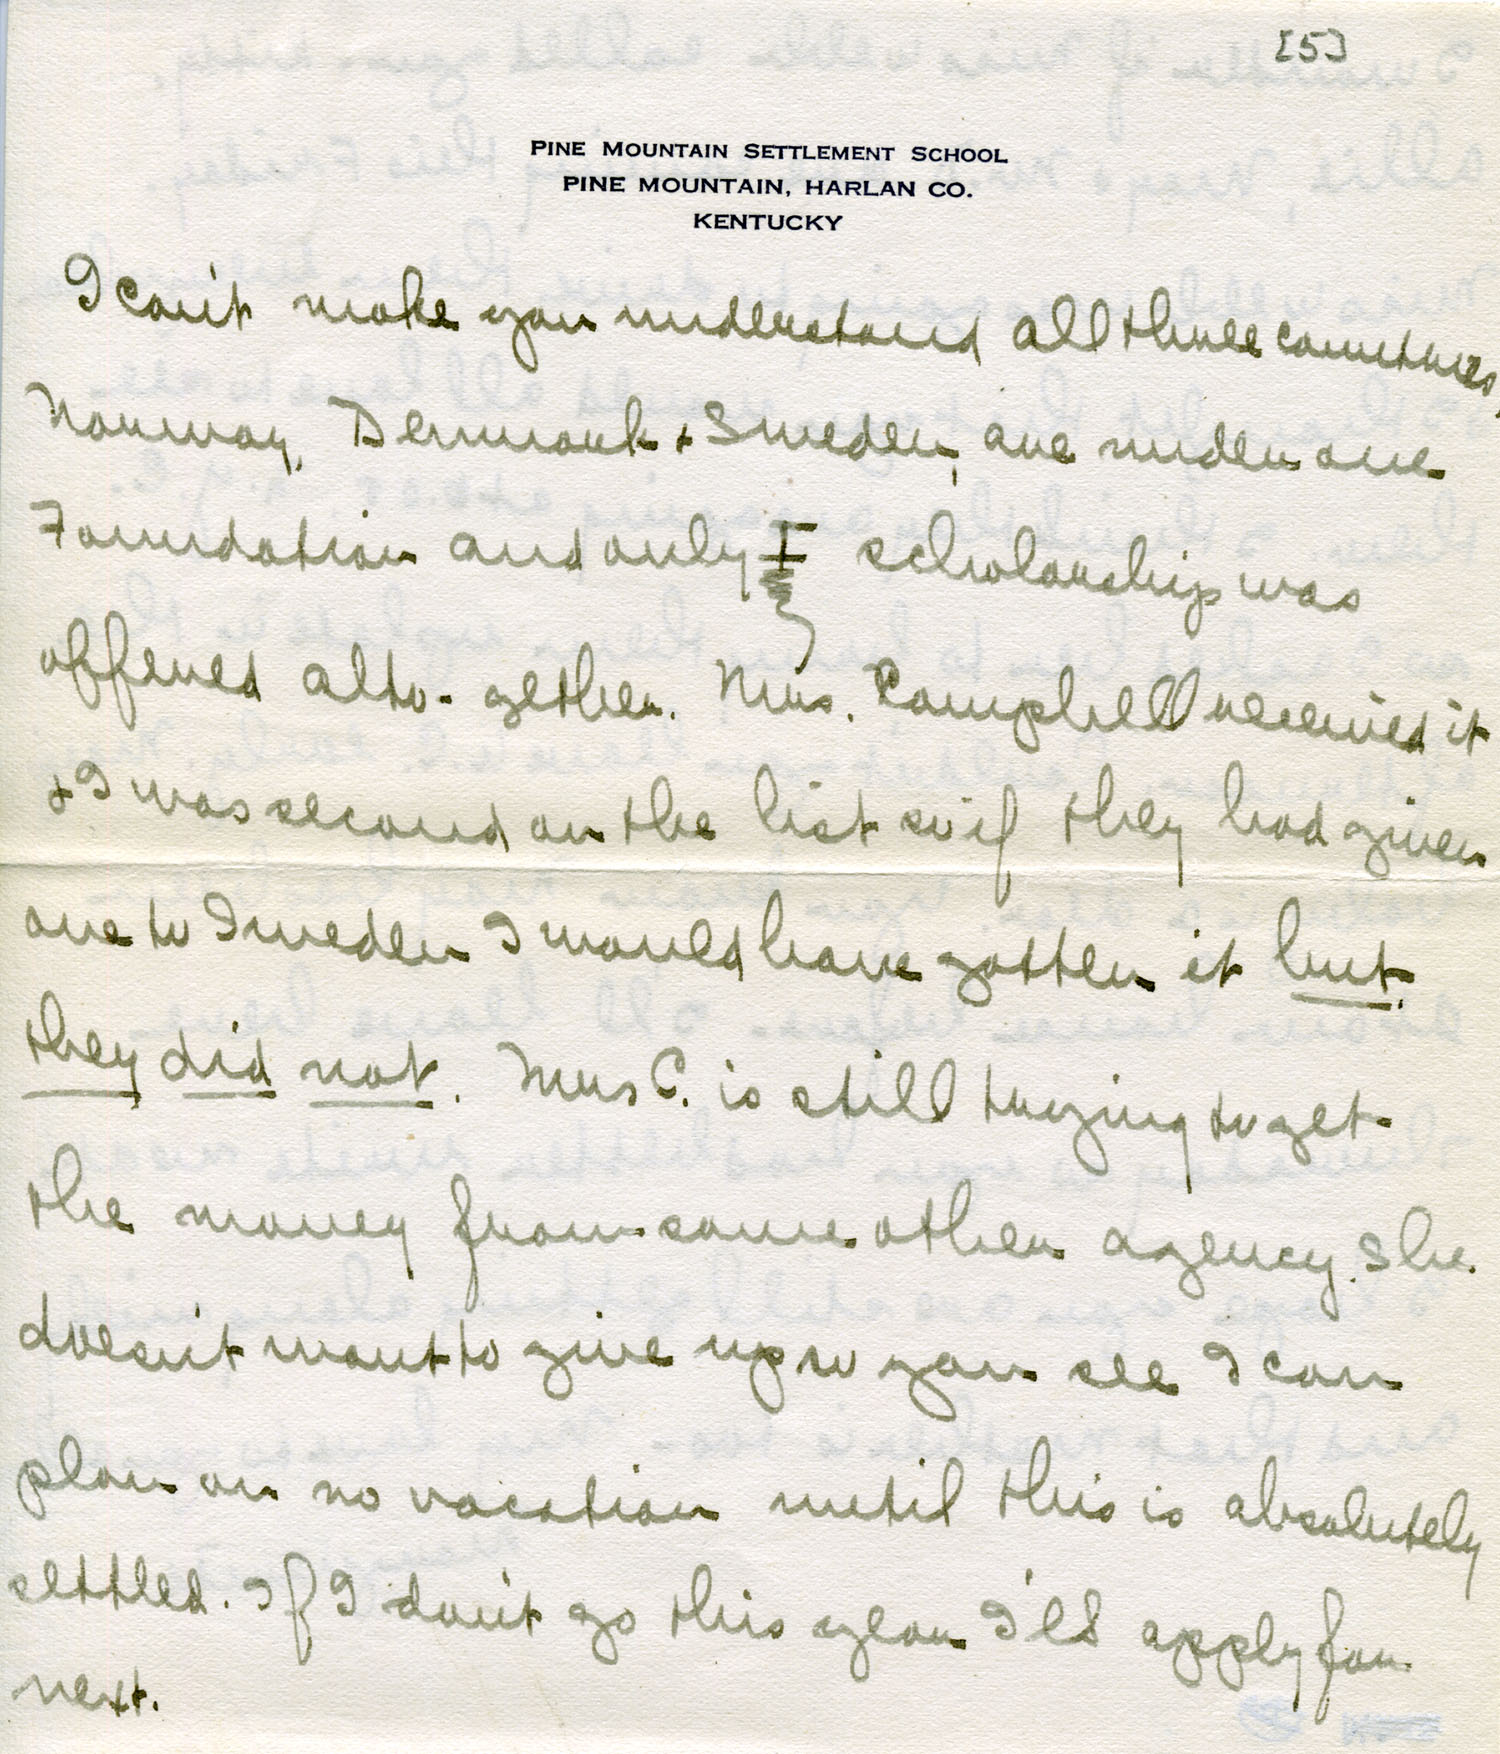 [5]
PINE MOUNTAIN SETTLEMENT SCHOOL
PINE MOUNTAIN, HARLAN CO.
KENTUCKY
I can't make you understand all three countries,
Norway, Denmark + Sweden, are under one
Foundation and only I scholarship was
offered alto-gether. Mrs. Campbell received it
+ I was second on the list so if they had given
one to Sweden I would have gotten it but
they did not. Mrs C. is still trying to get
the money from some other agency. She
doesn't want to give up so you see I can
plan on no vacation until this is absolutely
settled. If I don't go this year I'll apply for
next.